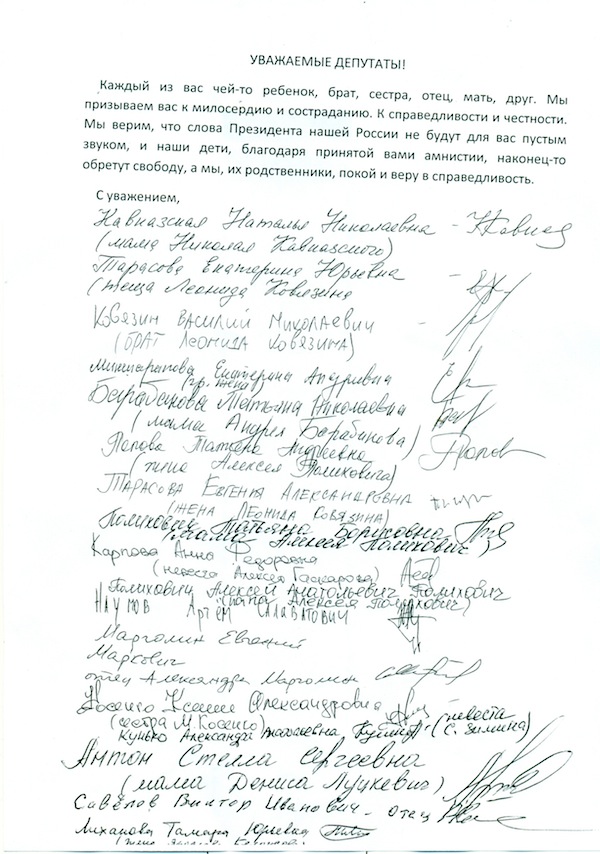 УВАЖАЕМЫЕ ДЕПУТАТЫ!
Каждый из вас чей-то ребенок, брат, сестра, отец, мать, друг. Мы
призываем вас к милосердию и состраданию. К справедливости и честности.
Мы верим, что слова Президента нашей России не будут для вас пустым
звуком, и наши дети, благодаря принятой вами амнистии, наконец-то
обретут свободу, а мы, их родственники, покой и веру в справедливость.
С уважением,
Кавказская Наталья Николаевна -
(мама Николая Кавказского)
Тарасова Екатерина Юрьевна -
(теща Леонида Ковязина
Ковязин Василий Николаевич -
(брат Леонида Ковязина)
Екатерина Андреевна
(гр. жена)
Барабанова Татьяна Николаевна
(мама Андрея Барабанова)
Попова Татьяна Андреевна
(жена Алексея Полиховича)
Тарасова Евгения Александровна
(жена Леонида Ковязина)
Полихович Татьяна Борисовна
(мама Алексея Полихович)
Карпова Анна Федоровна
(невеста Алексея Гаскарова)
Полихович Алексей Анатольевич Полихович
(папа Алексея Полихович)
Наумов Артём Салаватович
Марголин Евгений
Маркович
отец Александра Марголина
Косенко Ксения Александровна
(сестра М. Косенко)
Кунько Александра Анатольевна (невеста
С. Зимина)
Антон Стелла Сергеевна
(мама Дениса Луцкевич)
Савёлов Виктор Иванович - отец
Лиханова Тамара Юрьевна